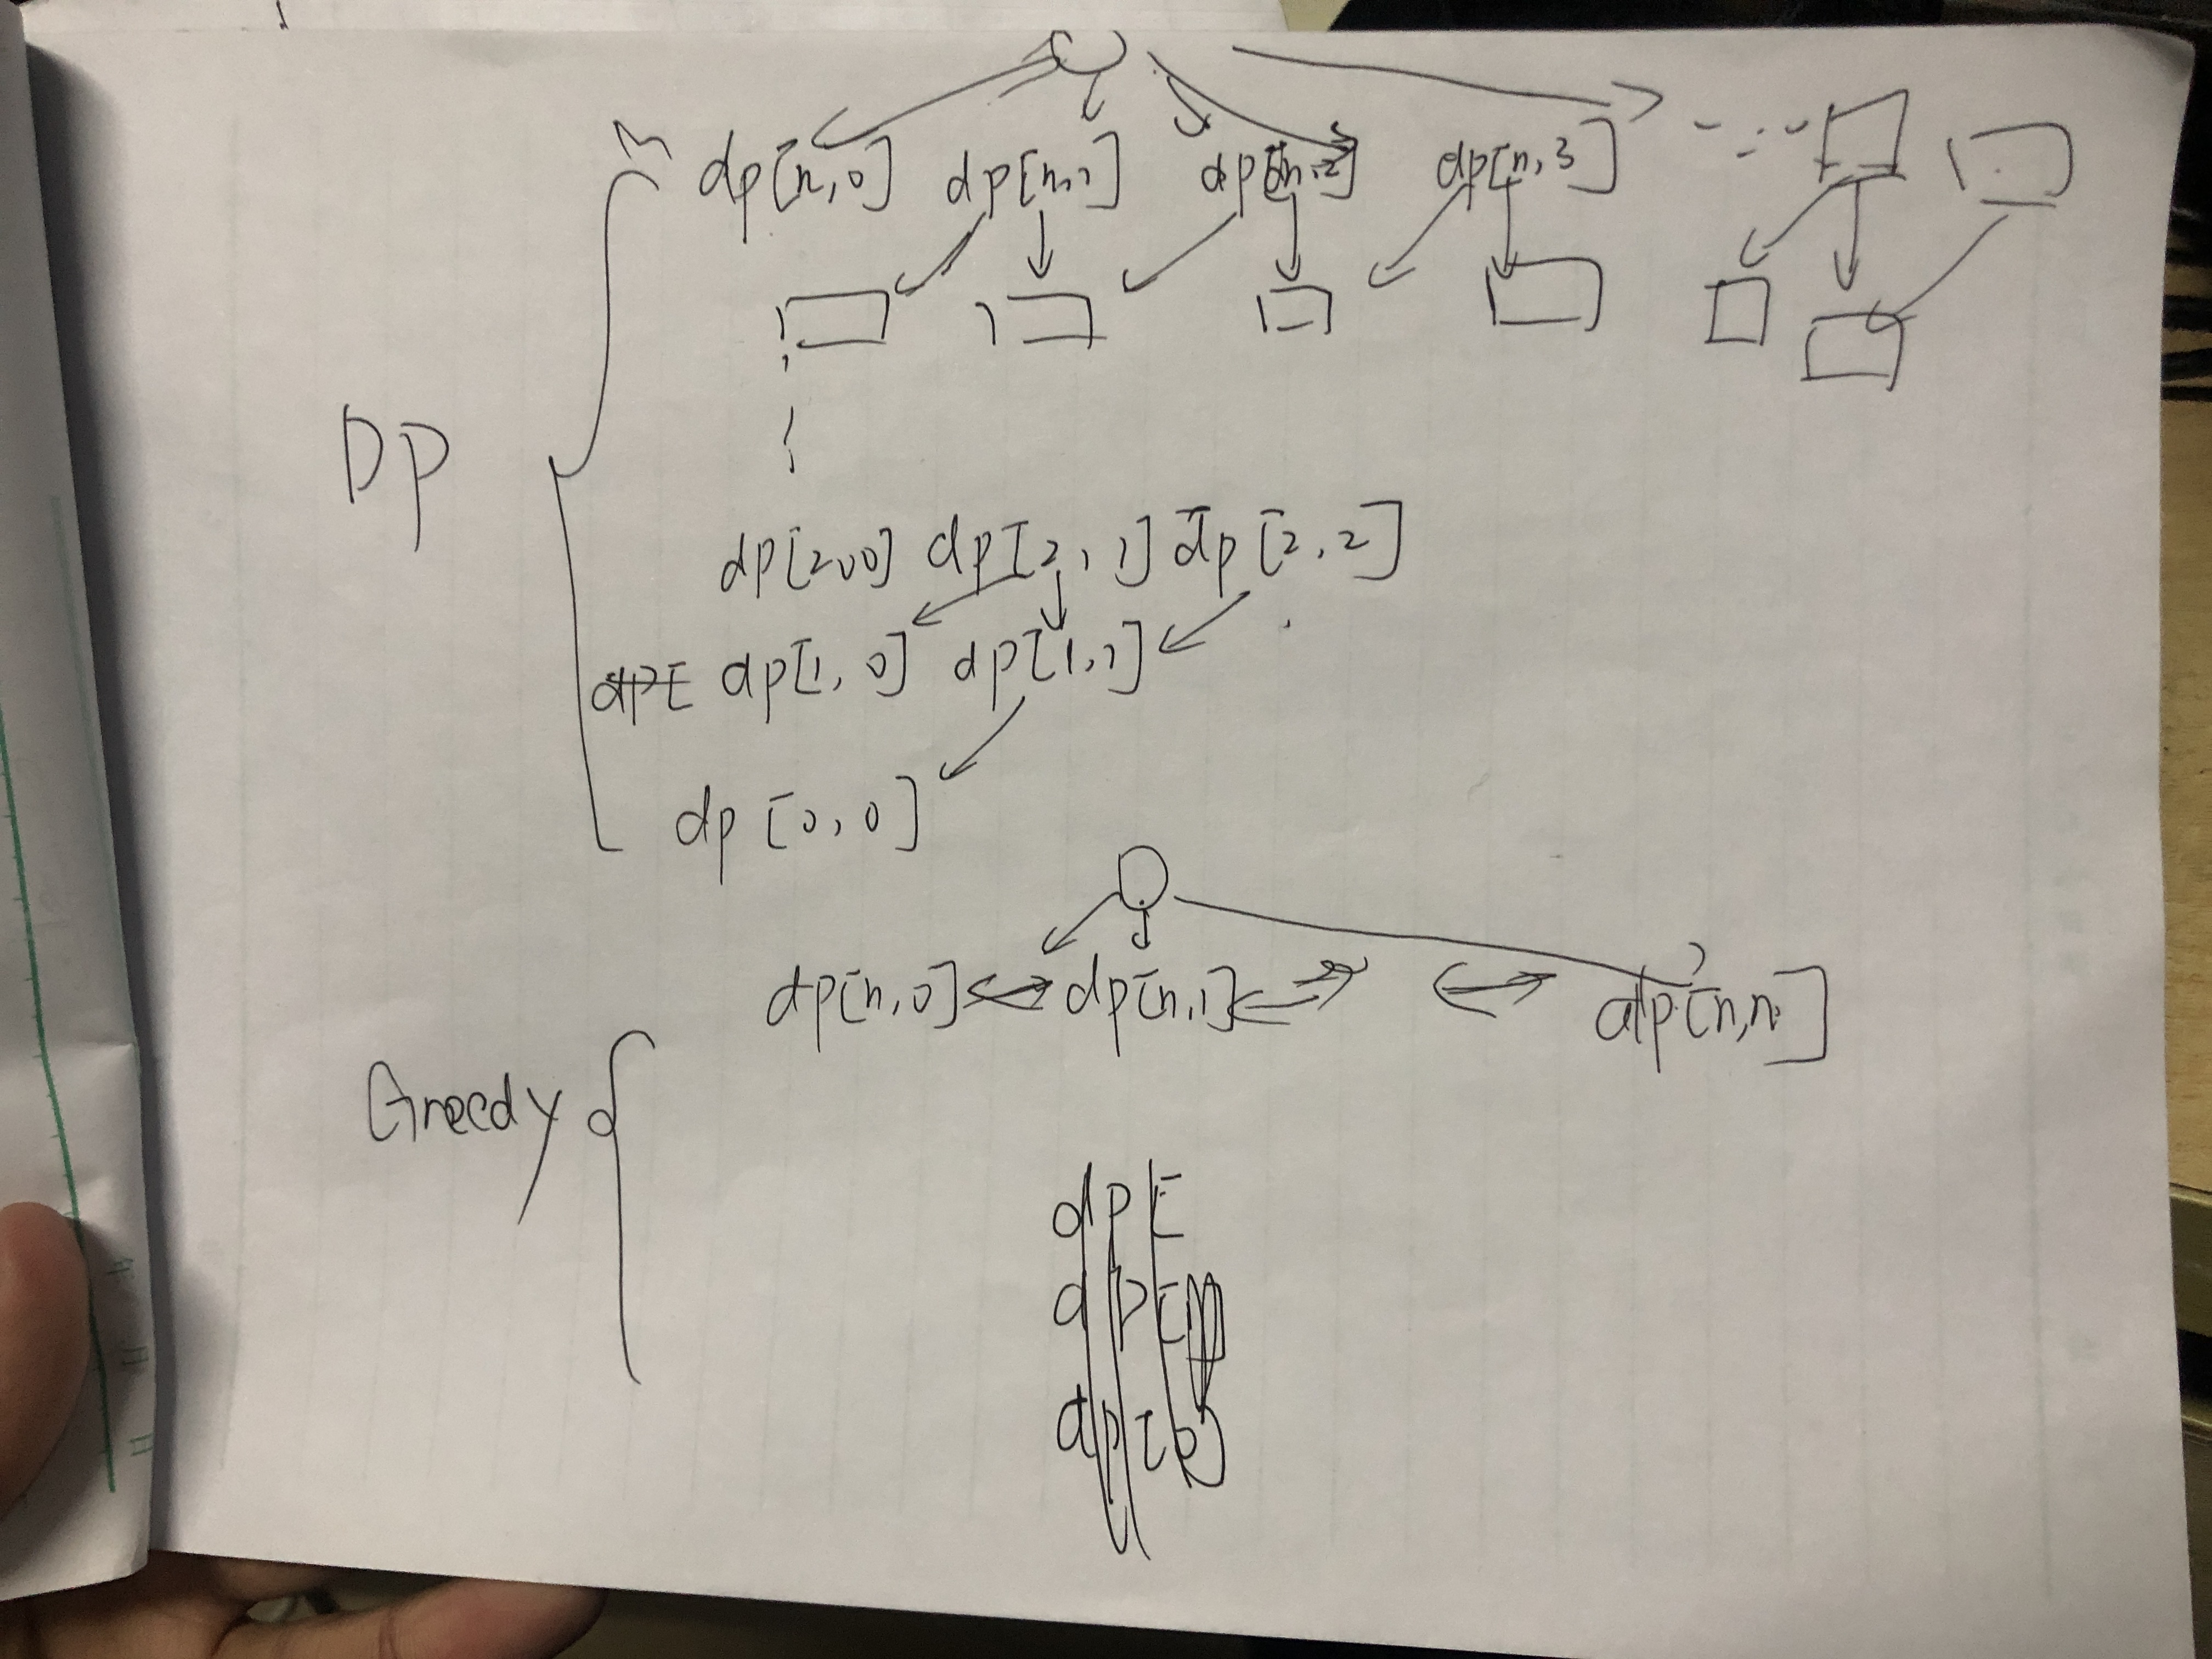 dp[n,0] dp[n,1] dp[n,2] dp[n,3]
DP
dp[2,0] dp[2,1] dp[2,2]
dp[ dp[1,0] dp[1,1]
dp[0,0]
dp[n,0] dp[n,1] dp[n,n]
Greedy
dp[